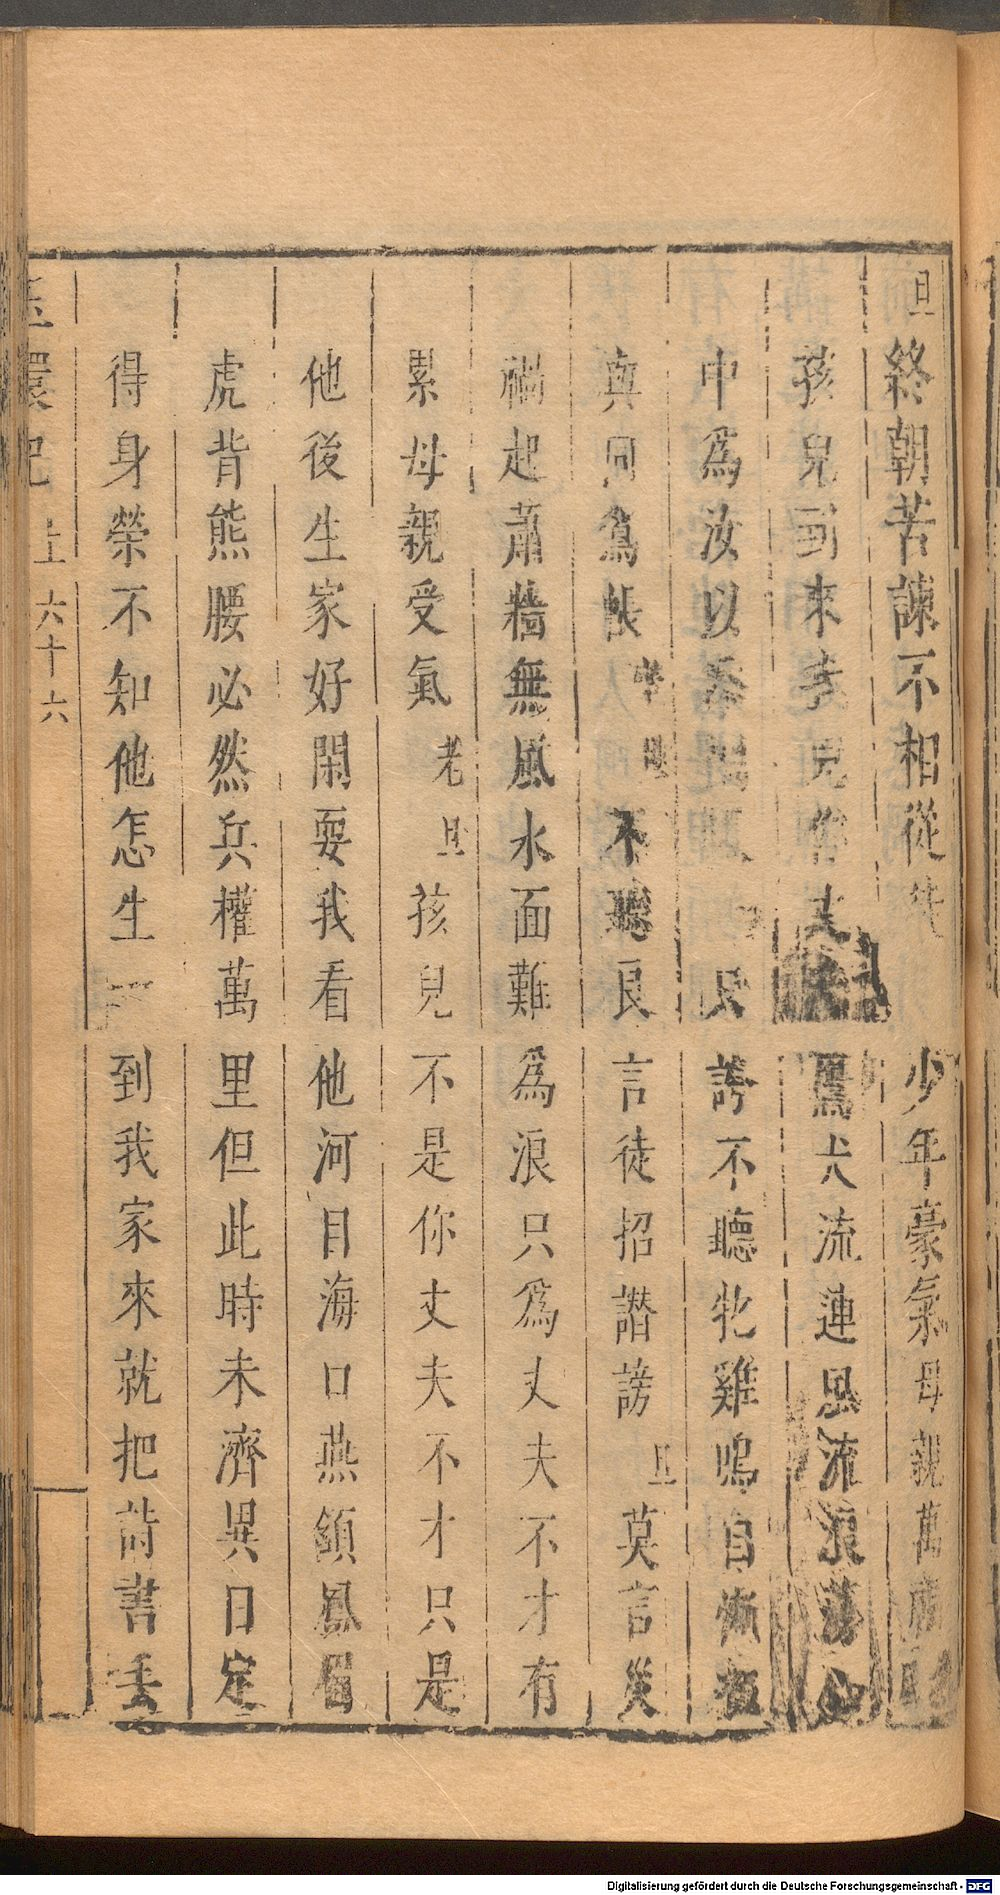 旦終朝苦諫不相從 少年豪氣母親萬
孩兒到來 兒 丈 鷹犬流連思流浪蕩心
中爲汝以 誇不聽牝雞鳴自
真同鴛帳 不聽良言徒招譖謗旦莫言災
禍起蕭牆無風水面難爲浪只爲丈夫不才有
累母親受氣老旦孩兒不是你丈夫不才只是
他後生家好閑耍我看他河目海口燕頷鳳眉
虎背熊腰必然兵權萬里但此時未濟異日定
得身榮不知他怎生 到我家來就把詩書丢
玉環記 上 六十六
Digitalisierung gefördert durch die Deutsche Forschungsgemeinschaft - DFG